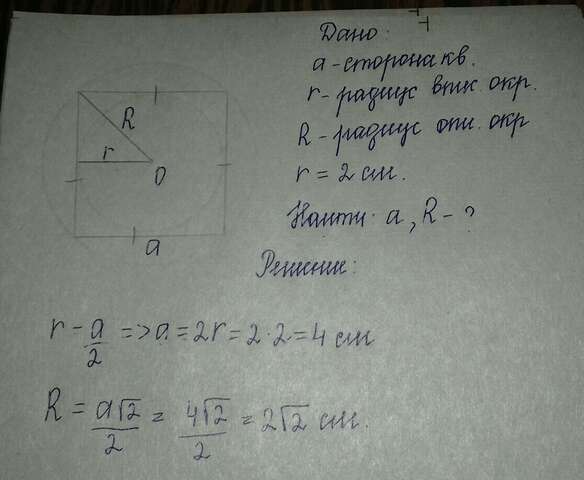 Дано:
a - сторона кв.
r - радиус впис окр.
R - радиус опи. окр
r = 2 см.
Найти: a, R - ?
R
r
O
a
Решение:
r - a/2 => a = 2r = 2·2 = 4 см
R = a√2/2 = 4√2/2 = 2√2 см.